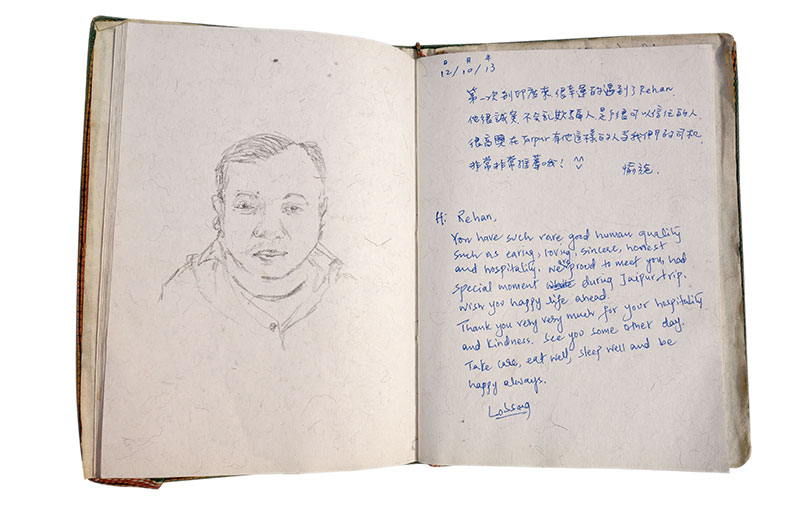 日 月 年
12/10/13
第一次到印度來很幸運的遇到了Rehan.
他很誠實不会亂欺騙人是個很可以信任的人
很高興在Jaipur有他這樣的人當我們的司机
非常非常推薦哦!
Hi Rehan,
You have such rare good human quality
such as caring, loving, sincere, honest
and hospitality. we are proud to meet you, had
special moment during Jaipur trip.
wish you happy life ahead.
Thank you very very much for your hospitality
and kindness. See you some other day.
Take care, eat well, sleep well and be
happy always.
Lobsang